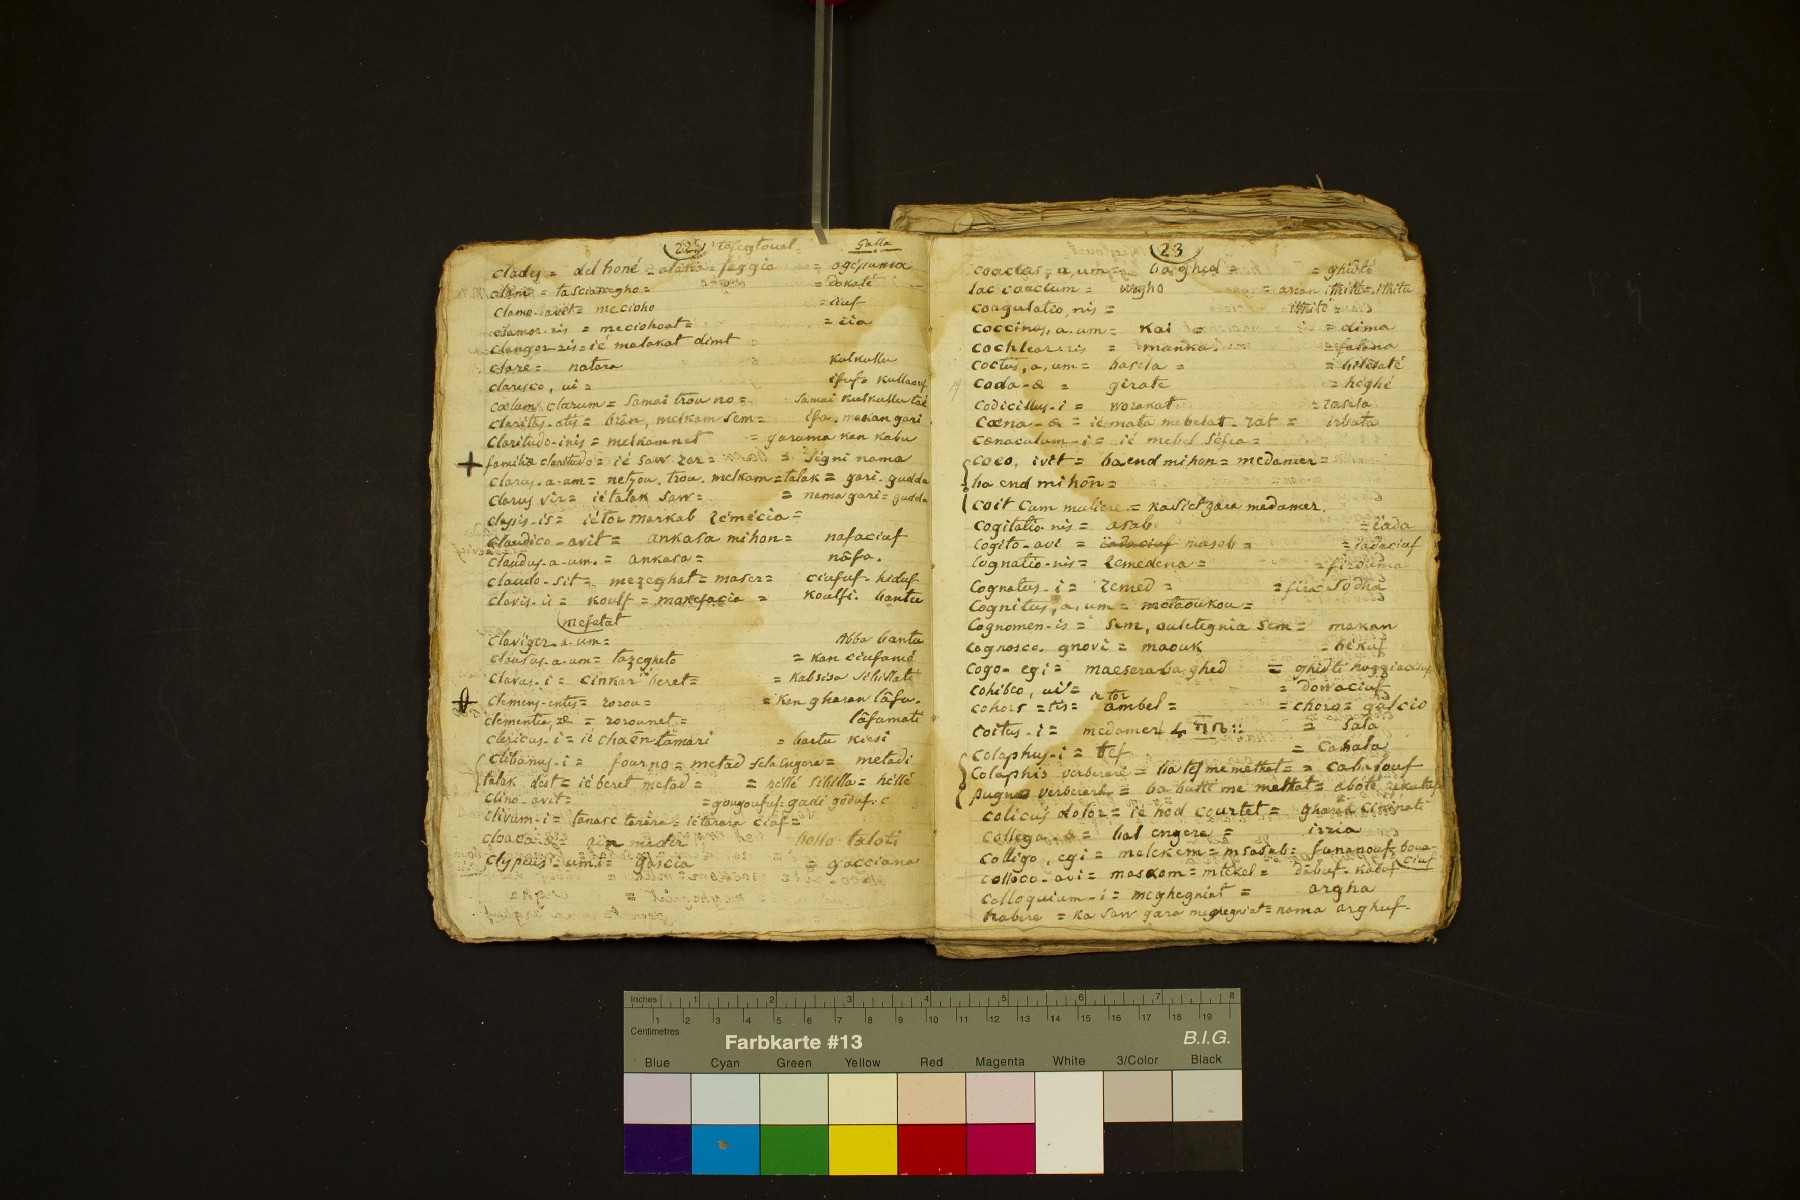 22 Galla
clades = del honé = alaka = feggia = agésuma
clam = tasciaregho = = dokaté
clamo-avit = mecioho = ciuf
clamor-ris = meciohoat = = cia
clangor-ris = ié malakat dimt =
clare = natara kulkullu
claresco, ui = ifuf = kullaouf
cœlum clarum = samai trou no = samai kulkullu taé
claritas-atis = brān, melkam sem = ifa. makan gari
claritudo-inis = melkamnet = garuma kan kabu
+ familiæ claritudo = ié saw zer = = ségni nama
clarus-a-um = netzou. trou. melkam = talak = gari. gudda
clarus vir = ié talak saw = = nama gari = gudda
classis-is = ié tor markab zemécia =
claudico-avit = ankasa mihon = nafaciuf
claudus-a-um. = ankasa = nāfa.
claudo-sit = mezeghat = maser = ciufuf. heduf
clavis-is = koulf = makefacia = koulfi. bantu
mefetat
claviger-a-um = Abba bantu
clausus-a-um = tazegheto = kan ciufamé
clavus-i = cinkar beret = = kabsisa sibillati
clemens-entis = zorou = = kan gharan lāfu.
clementia, æ = zorounet = lāfumati
clericus-i = ié chaēn tamari = bartu kiesi
clibanus-i = fourno = metad sela engera = metadi
talak dest = ié beret metad = = héllé sibilla = héllé
clino-avit = = gougoufuf. gadi gōduf.
clivum-i = tanasc tarāra = ié tarara ciaf =
cloaca-æ = aïn meder bolla taloti
clypeus = um. i = gascia = gacciana
23
coactus, a, um = ba ghed = = ghidté
lac coactum = wogho = anan ititu = ititu
coagulatio, nis = ititté
coccinus, a. um = kai = = dima
cochlear-ris = manka. = falana
coctus, a, um = basela = = bilcaté
coda-æ = girate = héghé
codicillus-i = worakat = rasela
Cæna-æ = ié mata mebelat. rat = irbata
cænaculum-i = ié mebel séfra =
coeo, ivit = ba end mihon = medamer =
ba end mihōn =
coit cum muliere = ka siet gara medamer.
cogitatio. nis = asab = iada
cogito-avi = masab = = iadaciuf
cognatio-nis = zemedena = = firouma
Cognatus, i = zemed = = fira Sodha
Cognitus, a, um = metaoukou =
Cognomen-is = sem, suletegnia sem = makan
cognosco. gnovi = maouk = békuf
cogo-egi = maesera ba ghed = ghidti huggiaciuf
cohibeo, ui = = dowaciuf
ié tor
cohors = tis = ambel = = chora = galcio
Coitus-i = medamer = Sala
colaphus-i = tef = Cabala
Colaphis verberare = ba tef memethat = = cabalouf
pugno verberare = ba butti me methat = aboté rekutuf
colicus dolor = ié hod courtet = gharak cininati
collega-æ = bal engera = irria
colligo, egi = melekem = msabeb = funanouf = boua-
ciuf
colloco-avi = maskom = mickel = dābuf. kaouf
colloquium-i = meghegniat = argha
habere = ka saw gara meghegniat = nama arghuf.
Inches 1 2 3 4 5 6 7 8
1 2 3 4 5 6 7 8 9 10 11 12 13 14 15 16 17 18 19
Centimetres
Farbkarte #13 B.I.G.
Blue Cyan Green Yellow Red Magenta White 3/Color Black